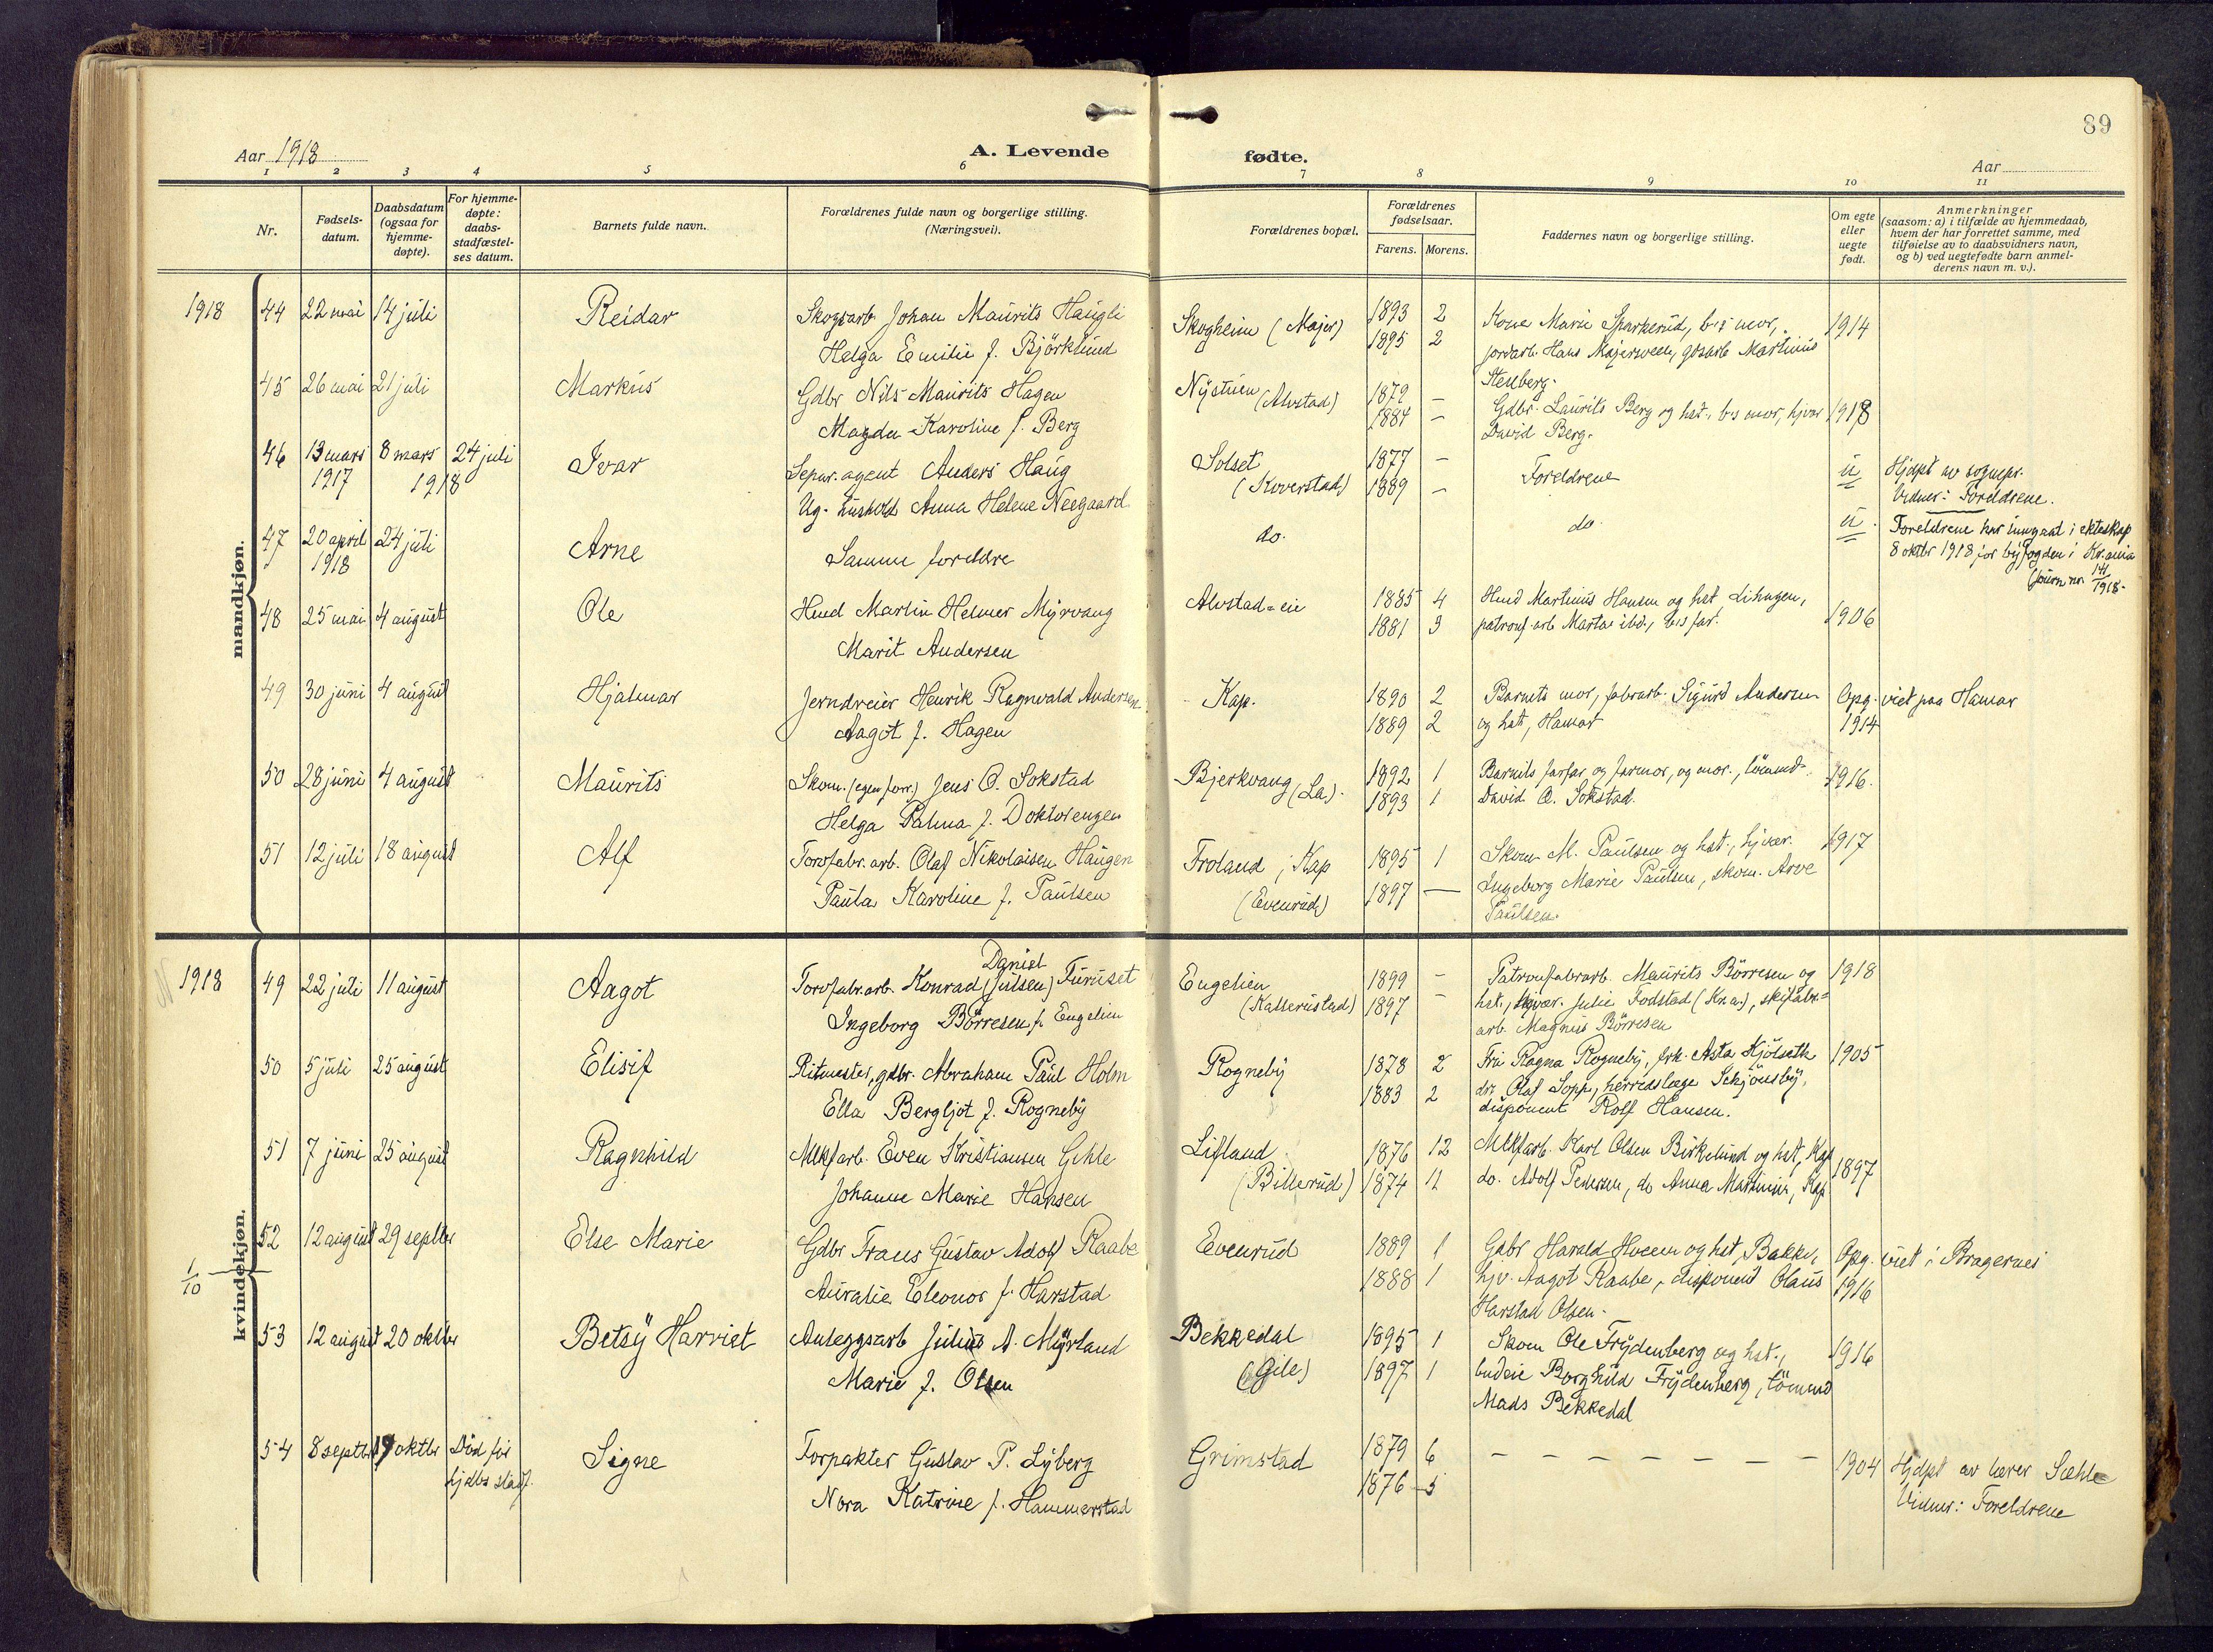 89
Aar 1918
A. Levende fødte.
Aar
1 2 3 4 5 6 7 8 9 10 11
Nr.
Fødsels-
datum.
Daabsdatum
(ogsaa for
hjemme-
døpte).
For hjemme-
døpte:
daabs-
stadfæstel-
ses datum.
Barnets fulde navn.
Forældrenes fulde navn og borgerlige stilling.
(Næringsvei).
Forældrenes bopæl.
Forældrenes
fødselsaar.
Farens. Morens.
Faddernes navn og borgerlige stilling.
Om egte
eller
uegte
født.
Anmerkninger
(saasom: a) i tilfælde av hjemmedaab,
hvem der har forrettet samme, med
tilføielse av to daabsvidners navn,
og b) ved uegtefødte barn anmel-
derens navn m. v.).
mandkjøn.
1918 44 22 mai 14 juli Reidar Skogsarb. Johan Maurits Haugli Skogheim (Majer) 1893 2 Kone Marie Sparkerud, b's mor, 1914
Helga Emilie f. Björklund 1895 2 jordarb. Hans Majerween, gdsarb Martinius
Stenberg.
45 26 mai 21 juli Markus Gdbr Nils Maurits Hagen Nystuen (Alvstad) 1879 – Gdbr. Laurits Berg og hst., b's mor, hjvær 1918
Magda Karoline f. Berg 1884 – David Berg.
46 13 mars 8 mars 24 juli Ivar Separ. agent Anders Haug Solset 1877 – Foreldrene u Hjdpt av sognepr.
1917 1918 Ug. hushold Anna Helene Neegaard (Koverstad) 1889 – Vidner: Foreldrene.
47 20 april 24 juli Arne Samme foreldre do. do. u. Foreldrene har inngaat i ekteskap
1918 8 oktbr 1918 for byfogden i Kr.ania
(journ nr 141/1918.
48 25 mai 4 august Ole Hmd Martin Helmer Myrvang Alvstad-eie 1885 4 Hmd Martinius Hansen og hst Lihagen, 1906
Marit Andersen 1881 3 patronf.arb Martin ibd., b's far.
49 30 juni 4 august Hjalmar Jerndreier Henrik Ragnvald Andersen Kap. 1890 2 Barnets mor, fabrarb. Sigurd Andersen Opg. viet paa Hamar
Aagot f. Hagen 1889 2 og hst, Hamar 1914
50 28 juni 4 august Maurits Skom. (egen forr.) Jens O. Sokstad Bjerkvang (La.) 1892 1 Barnets farfar og farmor, og mor., tömmd. 1916.
Helga Palma f. Doktorengen 1893 1 David O. Sokstad.
51 12 juli 18 august Alf Torvfabr.arb. Olaf Nikolaisen Haugen Froland, Kap 1895 1 Skom M. Paulsen og hst., hjvær. 1917
Paula Karoline f. Paulsen (Evenrud) 1897 – Ingeborg Marie Paulsen, skom. Arve
Paulsen.
kvindekjøn.
1918 49 22 juli 11 august Aagot Torvfabr.arb. Konrad Daniel (Julsen) Furuset Engelien 1899 – Patronfabrarb. Maurits Börresen og 1918
Ingeborg Börresen f. Engelien (Kallerustad) 1897 – hst., hjvær. Julie Fodstad (Kr.a.), skifabr=
arb. Magnus Börresen
50 5 juli 25 august Elisif Ritmester, gdbr. Abraham Paul Holm Rogneby 1878 2 Fru Ragna Rogneby, frk. Asta Hjölseth 1905
Ella Bergljot f. Rogneby 1883 2 dr. Olaf Sopp, herredslæge Schjönsby,
disponent Rolf Hansen.
51 7 juni 25 august Ragnhild Mlkfarb. Even Kristiansen Gihle Lifland 1876 12 Mlkfarb. Karl Olsen Birkelund og hst, Kap 1897
Johanne Marie Hansen (Billerud) 1874 11 do. Adolf Pedersen, do Anna Martinius, Kap
52 12 august 29 septbr Else Marie Gdbr Frans Gustav Adolf Raabe Evenrud 1889 1 Gdbr Harald Hveem og hst, Bakke, Opg. viet i Bragernes
1/10 Auralie Eleonor f. Harstad 1888 1 hjv. Aagot Raabe, disponent Olaus 1916
Harstad Olsen.
53 12 august 20 oktbr Betsy Harriet Anleggsarb Julius A. Myrland Bekkedal 1895 1 Skom Ole Frydenberg og hst., 1916
Marie f. Olsen (Gile) 1897 1 budeie Borghild Frydenberg, tömmd
Mads Bekkedal
54 8 septbr 19 oktbr Död för Signe Forpakter Gustav P. Lyberg Grimstad 1879 6 – – – – – – – 1904 Hjdpt av lærer Sæhle
hjdbs stadf. Nora Katrine f. Hammerstad 1876 5 Vidner: Foreldrene